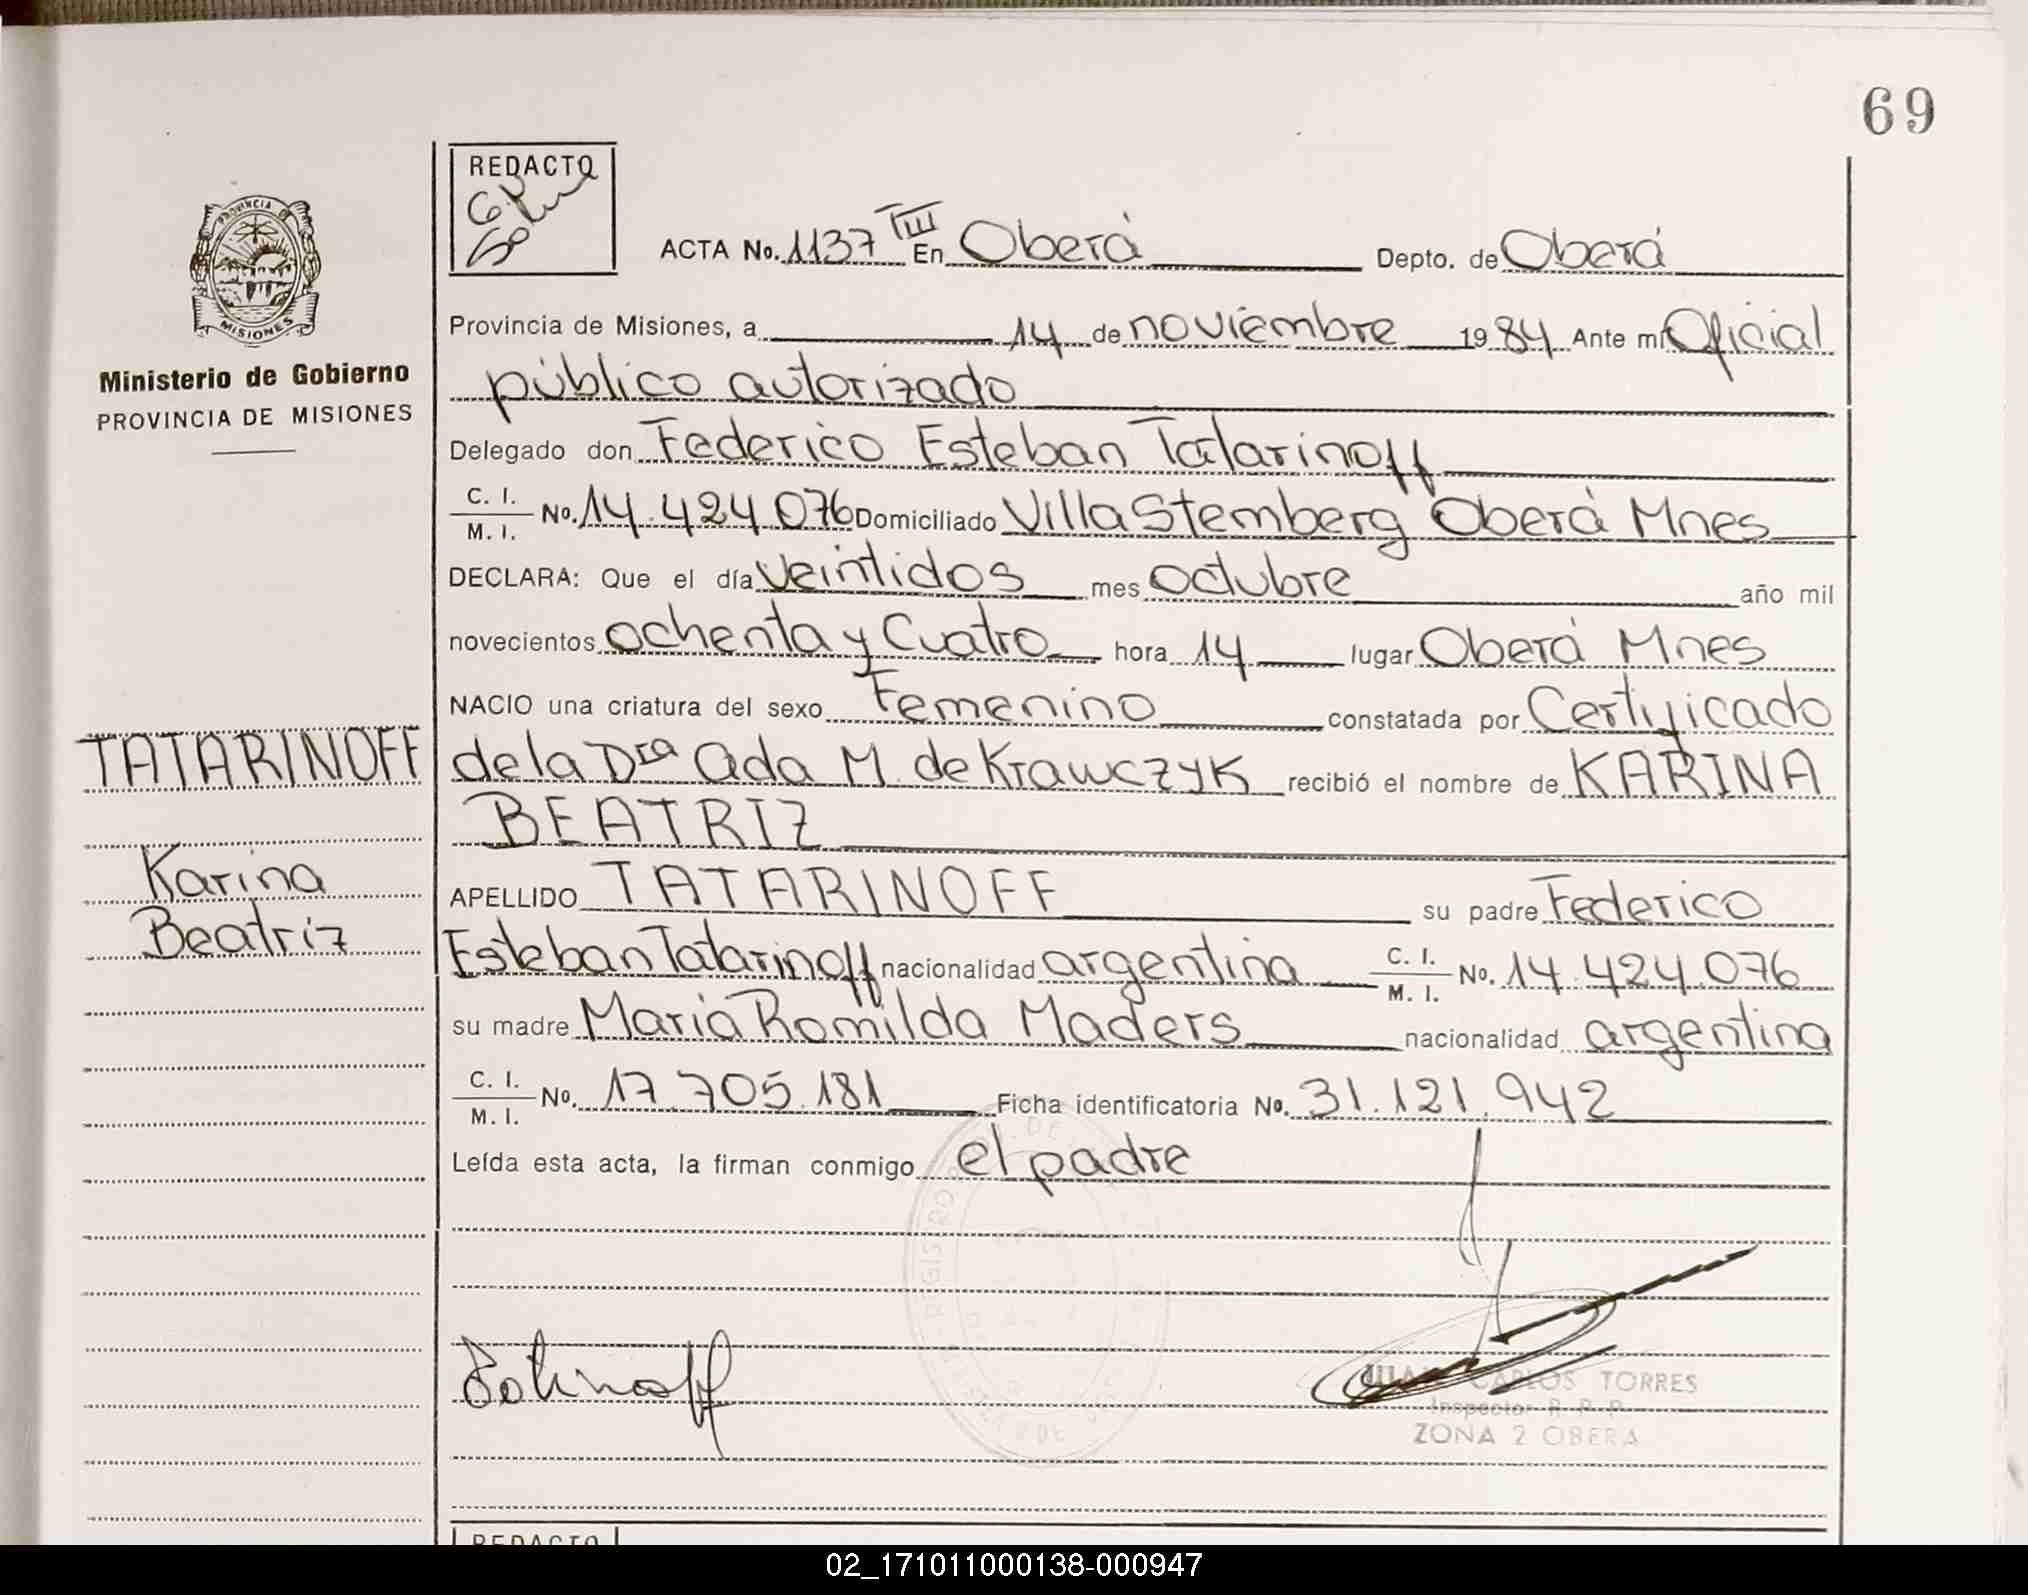 69
PROVINCIA DE
MISIONES
Ministerio de Gobierno
PROVINCIA DE MISIONES
REDACTO
ACTA No. 1137 TIII En Oberá Depto. de Oberá
Provincia de Misiones, a 14 de noviembre 1984 Ante mí Oficial
público autorizado
Delegado don Federico Esteban Tatarinoff
C. I. / M. I. No. 14.424.076 Domiciliado Villa Stemberg Oberá Mnes
DECLARA: Que el día veintidos mes octubre año mil
novecientos ochenta y cuatro hora 14 lugar Oberá Mnes
NACIO una criatura del sexo Femenino constatada por Certificado
de la Dra Ada M. de Krawczyk recibió el nombre de KARINA
BEATRIZ
APELLIDO TATARINOFF su padre Federico
Esteban Tatarinoff nacionalidad argentina C. I. / M. I. No. 14.424.076
su madre Maria Romilda Maders nacionalidad argentina
C. I. / M. I. No. 17.705.181 Ficha identificatoria No. 31.121.942
Leída esta acta, la firman conmigo el padre
TATARINOFF
Karina
Beatriz
JUAN CARLOS TORRES
Inspector R. P. P.
ZONA 2 OBERA
REDACTO
02_171011000138-000947